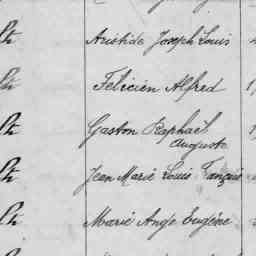 Aristide Joseph Louis
Félicien Alfred
Gaston Raphael
Auguste
Jean Marie Louis François
Marie Ange Eugène